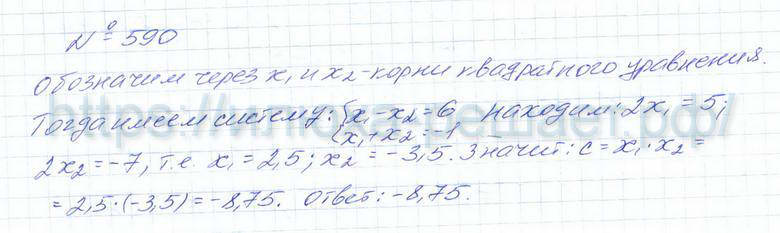 № 590
Обозначим через x₁ и x₂-корни квадратного уравнения.
Тогда имеем систему: {x₁-x₂=6 находим: 2x₁=5;
{x₁+x₂=-1
2x₂=-7, т.е. x₁=2,5; x₂=-3,5. Значит: c=x₁·x₂=
=2,5·(-3,5)=-8,75. Ответ: -8,75.